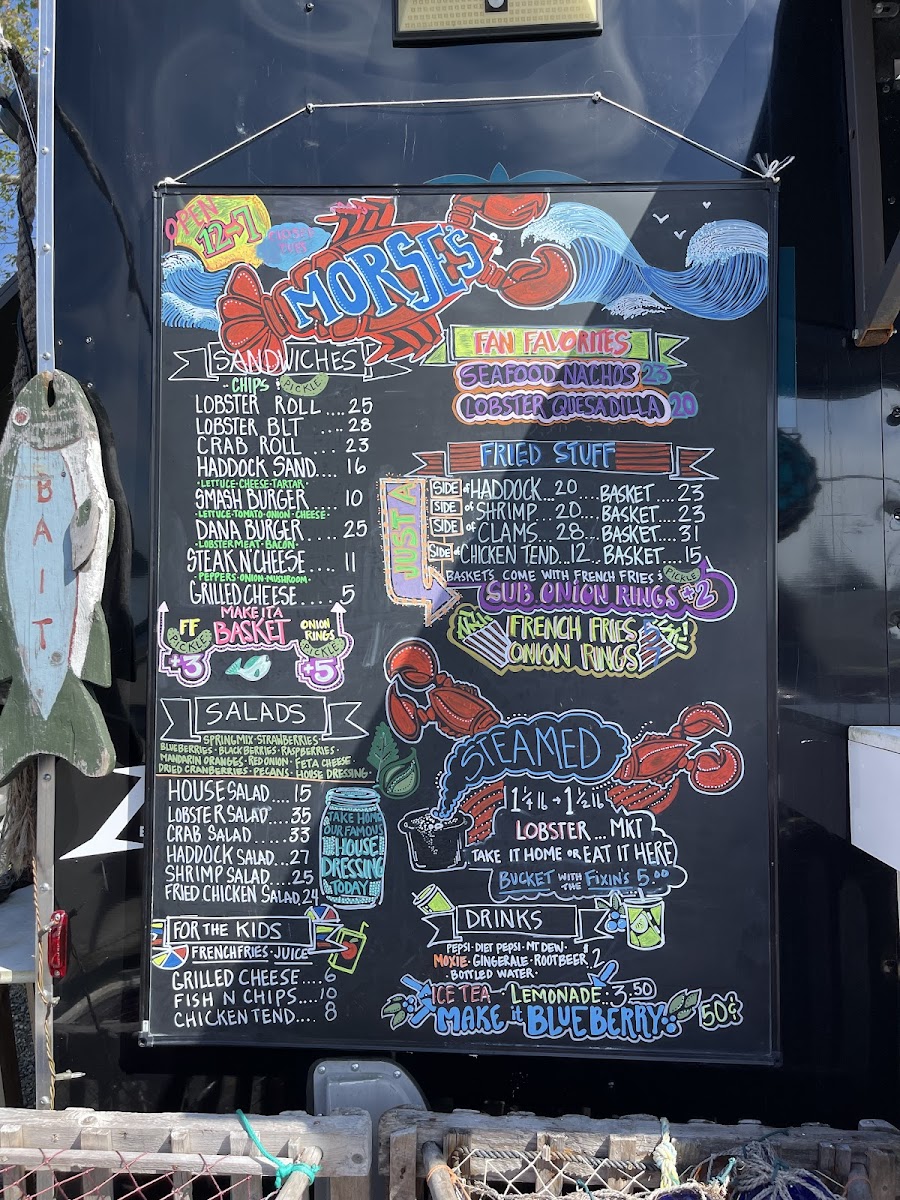 OPEN
12-7
MORSE'S
SANDWICHES
CHIPS & PICKLE
LOBSTER ROLL....25
LOBSTER BLT ....28
CRAB ROLL ....23
HADDOCK SAND....16
•LETTUCE•CHEESE•TARTAR•
SMASH BURGER 10
•LETTUCE•TOMATO•ONION•CHEESE•
DANA BURGER ....25
•LOBSTERMEAT•BACON•
STEAK N CHEESE... 11
PEPPERS•ONION•MUSHROOM•
GRILLED CHEESE....5
MAKE IT A
BASKET
FF
PICKLE
+3
ONION
RINGS
PICKLE
+5
SALADS
SPRINGMIX•STRAWBERRIES•
BLUEBERRIES•BLACKBERRIES•RASPBERRIES•
MANDARIN ORANGES•RED ONION•FETA CHEESE
DRIED CRANBERRIES•PECANS•HOUSE DRESSING•
HOUSE SALAD....15
LOBSTER SALAD....35
CRAB SALAD ....33
HADDOCK SALAD...27
SHRIMP SALAD....25
FRIED CHICKEN SALAD.24
TAKE HOME
OUR FAMOUS
HOUSE
DRESSING
TODAY
FOR THE KIDS
FRENCH FRIES•JUICE
GRILLED CHEESE....6
FISH N CHIPS....10
CHICKEN TEND.... 8
FAN FAVORITES
SEAFOOD NACHOS 23
LOBSTER QUESADILLA 20
FRIED STUFF
JUST A
SIDE of HADDOCK...20....BASKET....23
SIDE of SHRIMP...20....BASKET....23
SIDE of CLAMS...28....BASKET....31
SIDE of CHICKEN TEND..12..BASKET....15
BASKETS COME WITH FRENCH FRIES & PICKLE
SUB ONION RINGS +2
FRENCH FRIES
ONION RINGS
STEAMED
1 1/4 lb → 1 1/2 lb
LOBSTER ... MKT
TAKE IT HOME OR EAT IT HERE
BUCKET WITH THE FIXIN'S 5.00
DRINKS
PEPSI•DIET PEPSI•MT DEW•
MOXIE•GINGERALE•ROOTBEER 2
•BOTTLED WATER•
ICE TEA • LEMONADE..3.50
MAKE it BLUEBERRY 50¢
BAIT